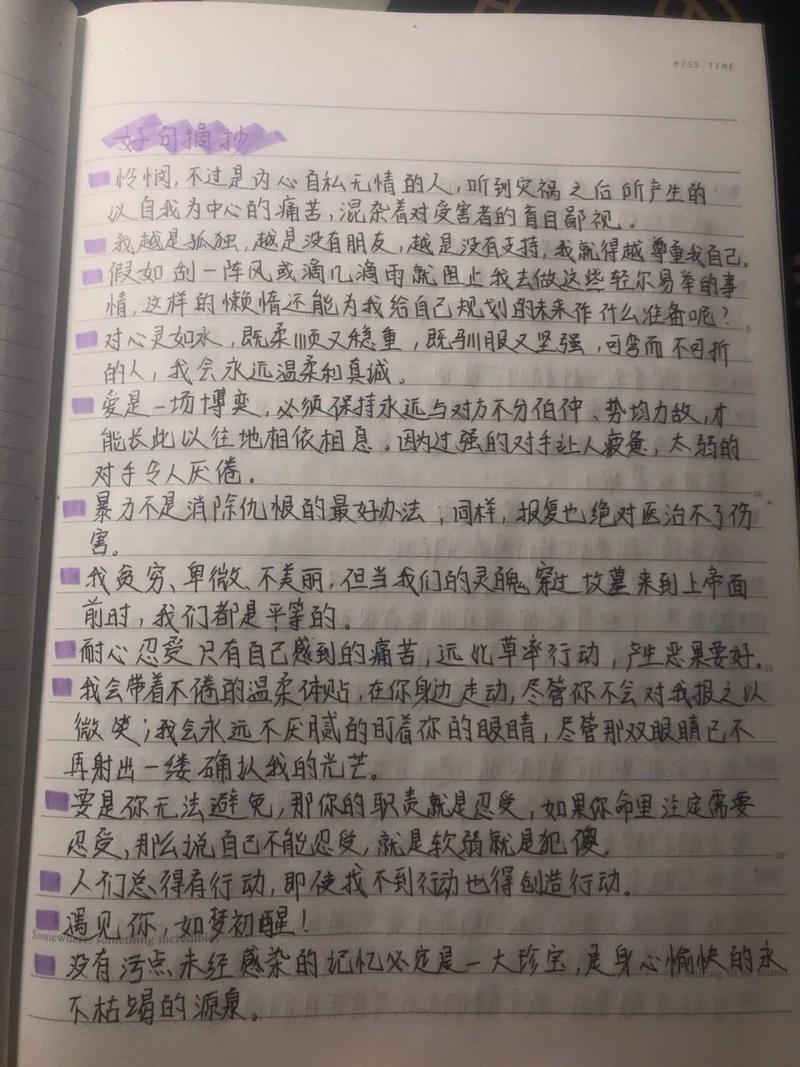 MISS TIME
好句摘抄
怜悯,不过是内心自私无情的人,听到灾祸之后所产生的
以自我为中心的痛苦,混杂着对受害者的盲目鄙视。
我越是孤独,越是没有朋友,越是没有支持,我就得越尊重我自己。
假如刮一阵风或滴几滴雨就阻止我去做这些轻尔易举的事
情,这样的懒惰还能为我给自己规划的未来作什么准备呢?
对心灵如水,既柔顺又稳重,既驯服又坚强,可弯而不可折
的人,我会永远温柔和真诚。
爱是一场博奕,必须保持永远与对方不分伯仲、势均力敌,才
能长此以往地相依相息。因为过强的对手让人疲惫,太弱的
对手令人厌倦。
暴力不是消除仇恨的最好办法;同样,报复也绝对医治不了伤
害。
我贫穷、卑微、不美丽,但当我们的灵魂穿过坟墓来到上帝面
前时,我们都是平等的。
耐心忍受只有自己感到的痛苦,远比草率行动,产生恶果要好。
我会带着不倦的温柔体贴,在你身边走动,尽管你不会对我报之以
微笑;我会永远不厌腻的盯着你的眼睛,尽管那双眼睛已不
再射出一缕确认我的光芒。
要是你无法避免,那你的职责就是忍受,如果你命里注定需要
忍受,那么说自己不能忍受,就是软弱就是犯傻。
人们总得有行动,即使找不到行动也得创造行动。
遇见你,如梦初醒!
Somewhere, something incredible
没有污点、未经感染的记忆必定是一大珍宝,是身心愉快的永
不枯竭的源泉。